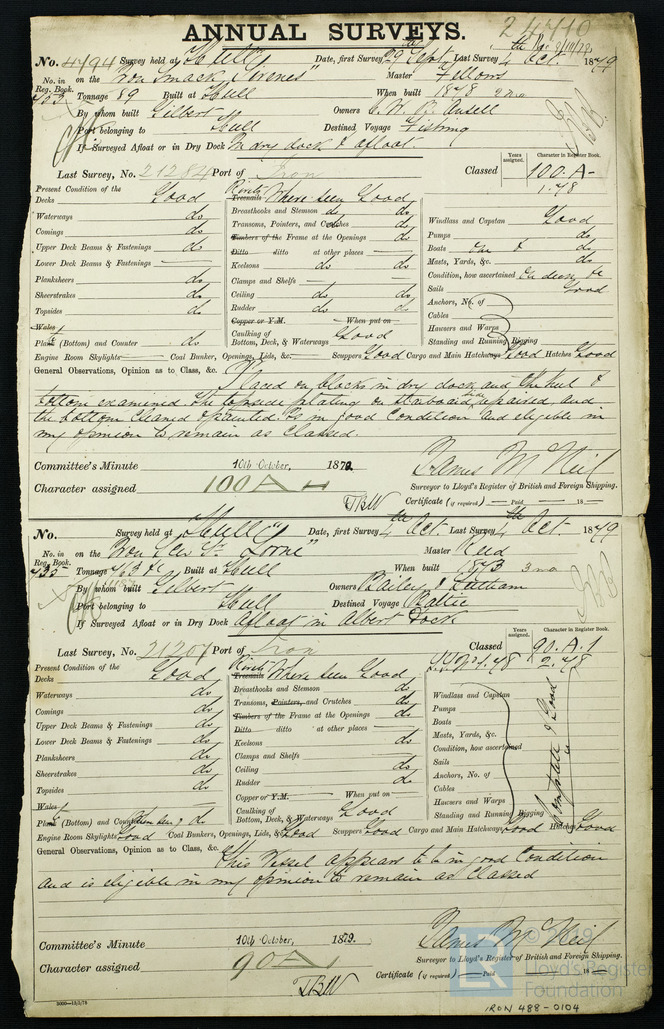 ANNUAL SURVEYS.
24710
No. 4794 Survey held at Hull Date, first Survey 29th Sept Last Survey 4th Oct. 1879
No. in Reg. Book. on the Iron Smack Master Fellows
Tonnage 89 Built at Hull When built 1878 2 mo
By whom built Gilbert Owners Ansell
Port belonging to Hull Destined Voyage Fishing
If Surveyed Afloat or in Dry Dock In dry dock & afloat.
Last Survey, No. 21284 Port of Iron Classed Years assigned. Character in Register Book. 100.A-
1.78
Present Condition of the
Decks Good
Waterways do
Comings do
Upper Deck Beams & Fastenings do
Lower Deck Beams & Fastenings
Planksheers do
Sheerstrakes do
Topsides do
Wales
Plank (Bottom) and Counter do
Rivets Treenails Where seen Good
Breasthooks and Stemson do do
Transoms, Pointers, and Crutches do
Timbers of the Frame at the Openings do
Ditto ditto at other places
Keelsons do do
Clamps and Shelfs
Ceiling do
Rudder do
Copper or Y.M. When put on
Caulking of
Bottom, Deck, & Waterways Good
Windlass and Capstan Good
Pumps do
Boats One & do
Masts, Yards, &c. do
Condition, how ascertained
Sails Good
Anchors, No. of
Cables
Hawsers and Warps
Standing and Running Rigging
Engine Room Skylights Coal Bunker, Openings, Lids, &c. Scuppers Good Cargo and Main Hatchways Good Hatches Good
General Observations, Opinion as to Class, &c. Placed on blocks in dry dock and the keel &
bottom examined the topside plating on starboard side repaired and
the bottom cleaned & painted. Is in good condition and eligible in
my opinion to remain as classed.
Committee's Minute 10th October, 1879.
Character assigned 100 A
James McNeil
Surveyor to Lloyd's Register of British and Foreign Shipping.
Certificate (if required) Paid 18
No. Survey held at Hull Date, first Survey 4th Oct. Last Survey 4th Oct. 1879
No. in Reg. Book. on the Iron Scw Sr. Lorne" Master Reed
Tonnage Built at Hull When built 1873 3 mo
By whom built Gilbert Owners Bailey & Leetham
Port belonging to Hull Destined Voyage Baltic
If Surveyed Afloat or in Dry Dock Afloat in Albert Dock
Last Survey, No. 21201 Port of Iron Classed Years assigned. Character in Register Book. 90.A.1
2.78
Present Condition of the
Decks Good
Waterways do
Comings do
Upper Deck Beams & Fastenings do
Lower Deck Beams & Fastenings do
Planksheers do
Sheerstrakes do
Topsides do
Wales
Plank (Bottom) and Counter do
Rivets Treenails Where seen Good
Breasthooks and Stemson do
Transoms, Pointers, and Crutches do
Timbers of the Frame at the Openings do
Ditto ditto at other places do
Keelsons do
Clamps and Shelfs
Ceiling do
Rudder do
Copper or Y.M. When put on
Caulking of
Bottom, Deck, & Waterways Good
Windlass and Capstan
Pumps
Boats
Masts, Yards, &c.
Condition, how ascertained
Sails
Anchors, No. of
Cables
Hawsers and Warps
Standing and Running Rigging
Complete & Good
Engine Room Skylights Good Coal Bunkers, Openings, Lids, &c. Good Scuppers Good Cargo and Main Hatchways Good Hatches Good
General Observations, Opinion as to Class, &c. This Vessel appears to be in good condition
and is eligible in my opinion to remain as classed
Committee's Minute 10th October, 1879.
Character assigned 90 A
James McNeil
Surveyor to Lloyd's Register of British and Foreign Shipping.
Certificate (if required) Paid 18
© 2019
Lloyd's Register
Foundation
IRON 488-0104